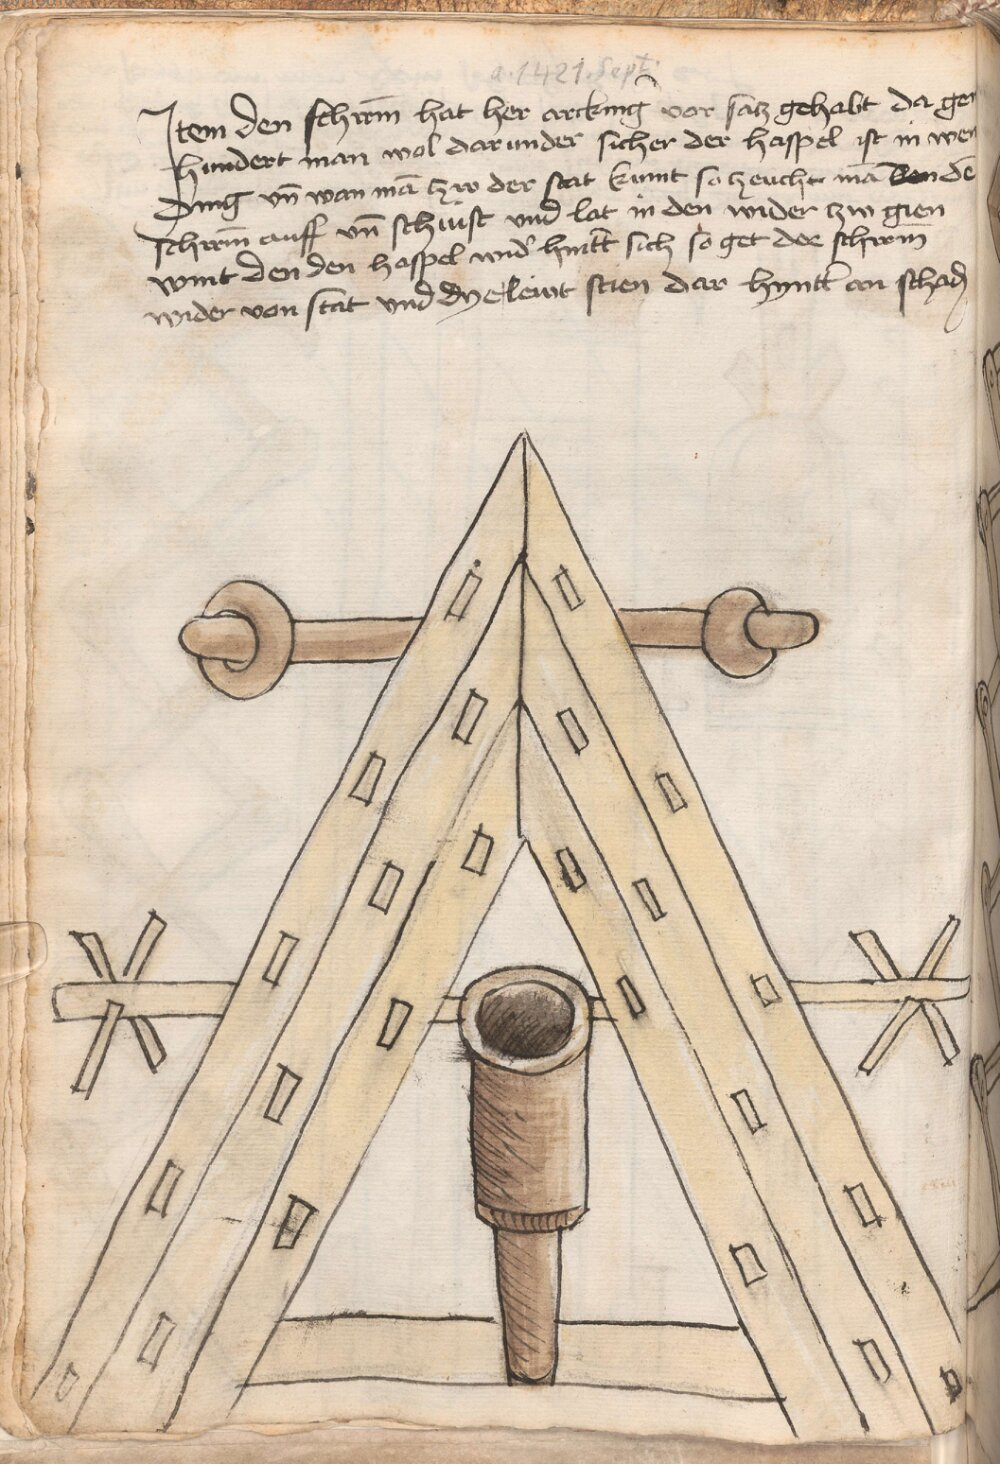 a. 1421. Sept.
Item den schirm hat her arcking vor satz gehabt da ge
hundert man wol darunder sicher der haspel ist in wen
ding vn̄ wan mā tzw der stat kumt so tzeucht mā den
schirm auff vn̄ schiust und lat in den wider tzw gien
wint den den haspel wid̄ hintt̄ sich so get der schirm
wider von stat und dye lewt stien dar hyntt̄ an schad